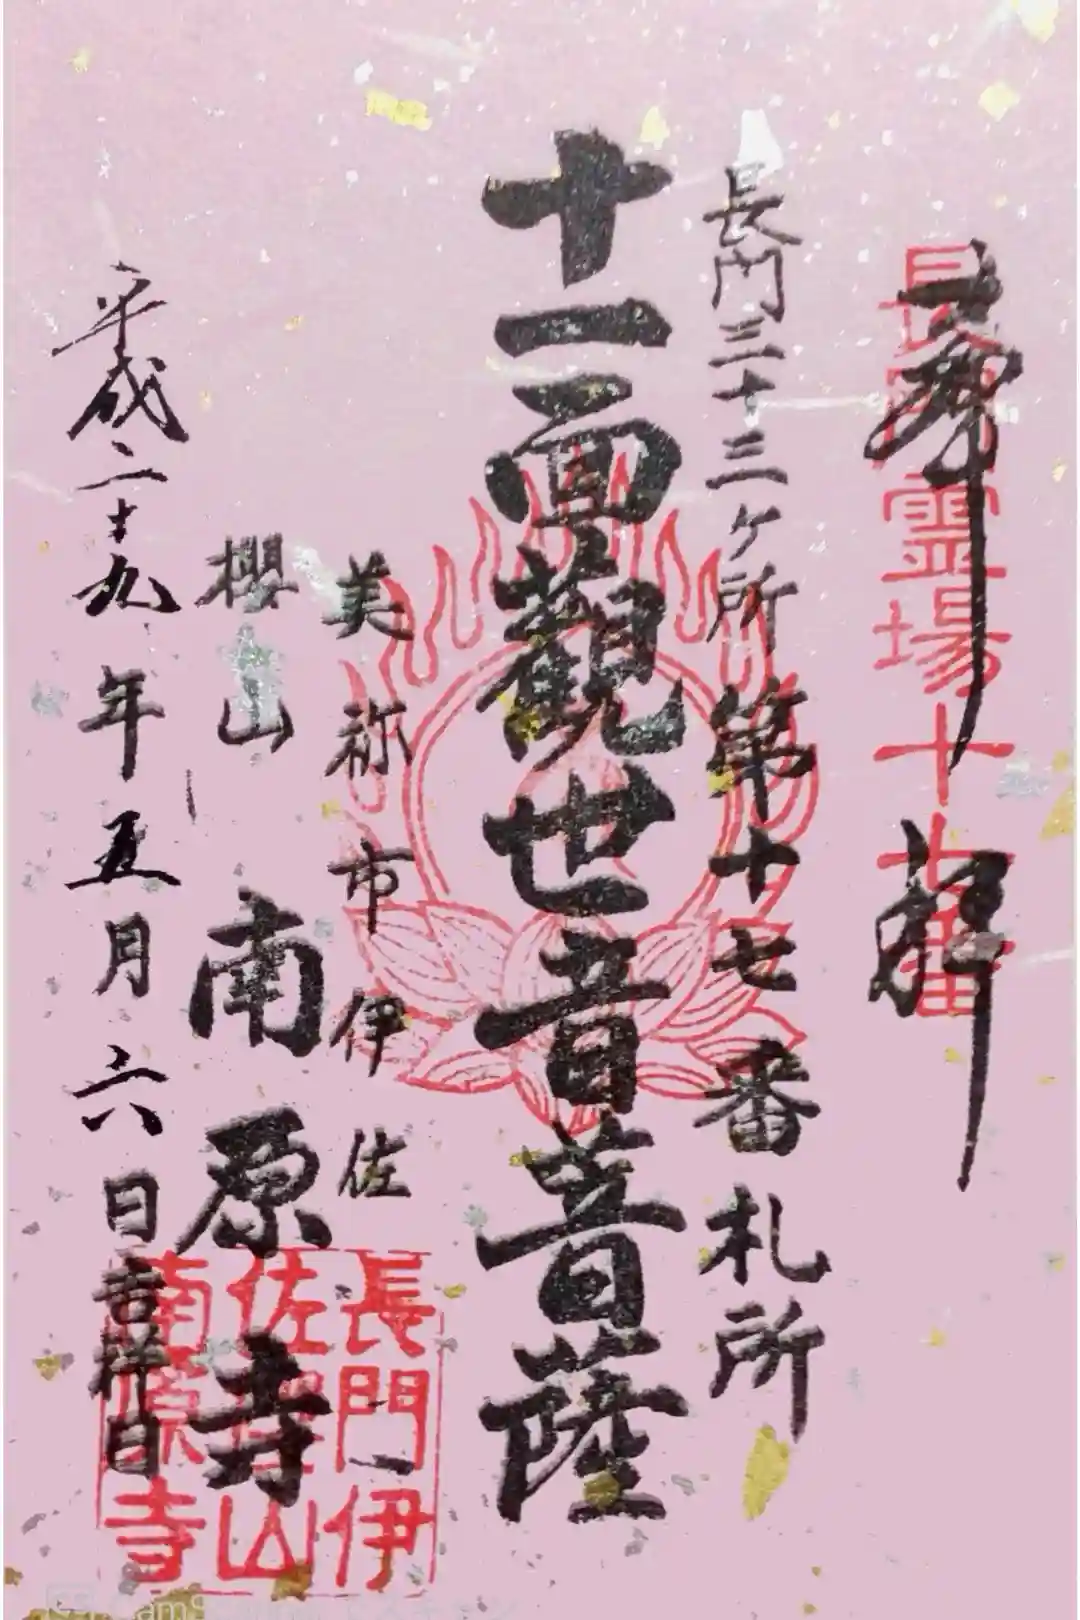 奉拝
長門霊場十七番
長門三十三ヶ所第十七番札所
十一面觀世音菩薩
美祢市伊佐
櫻山南原寺
平成二十九年五月六日吉祥日
長門伊
佐櫻山
南原寺